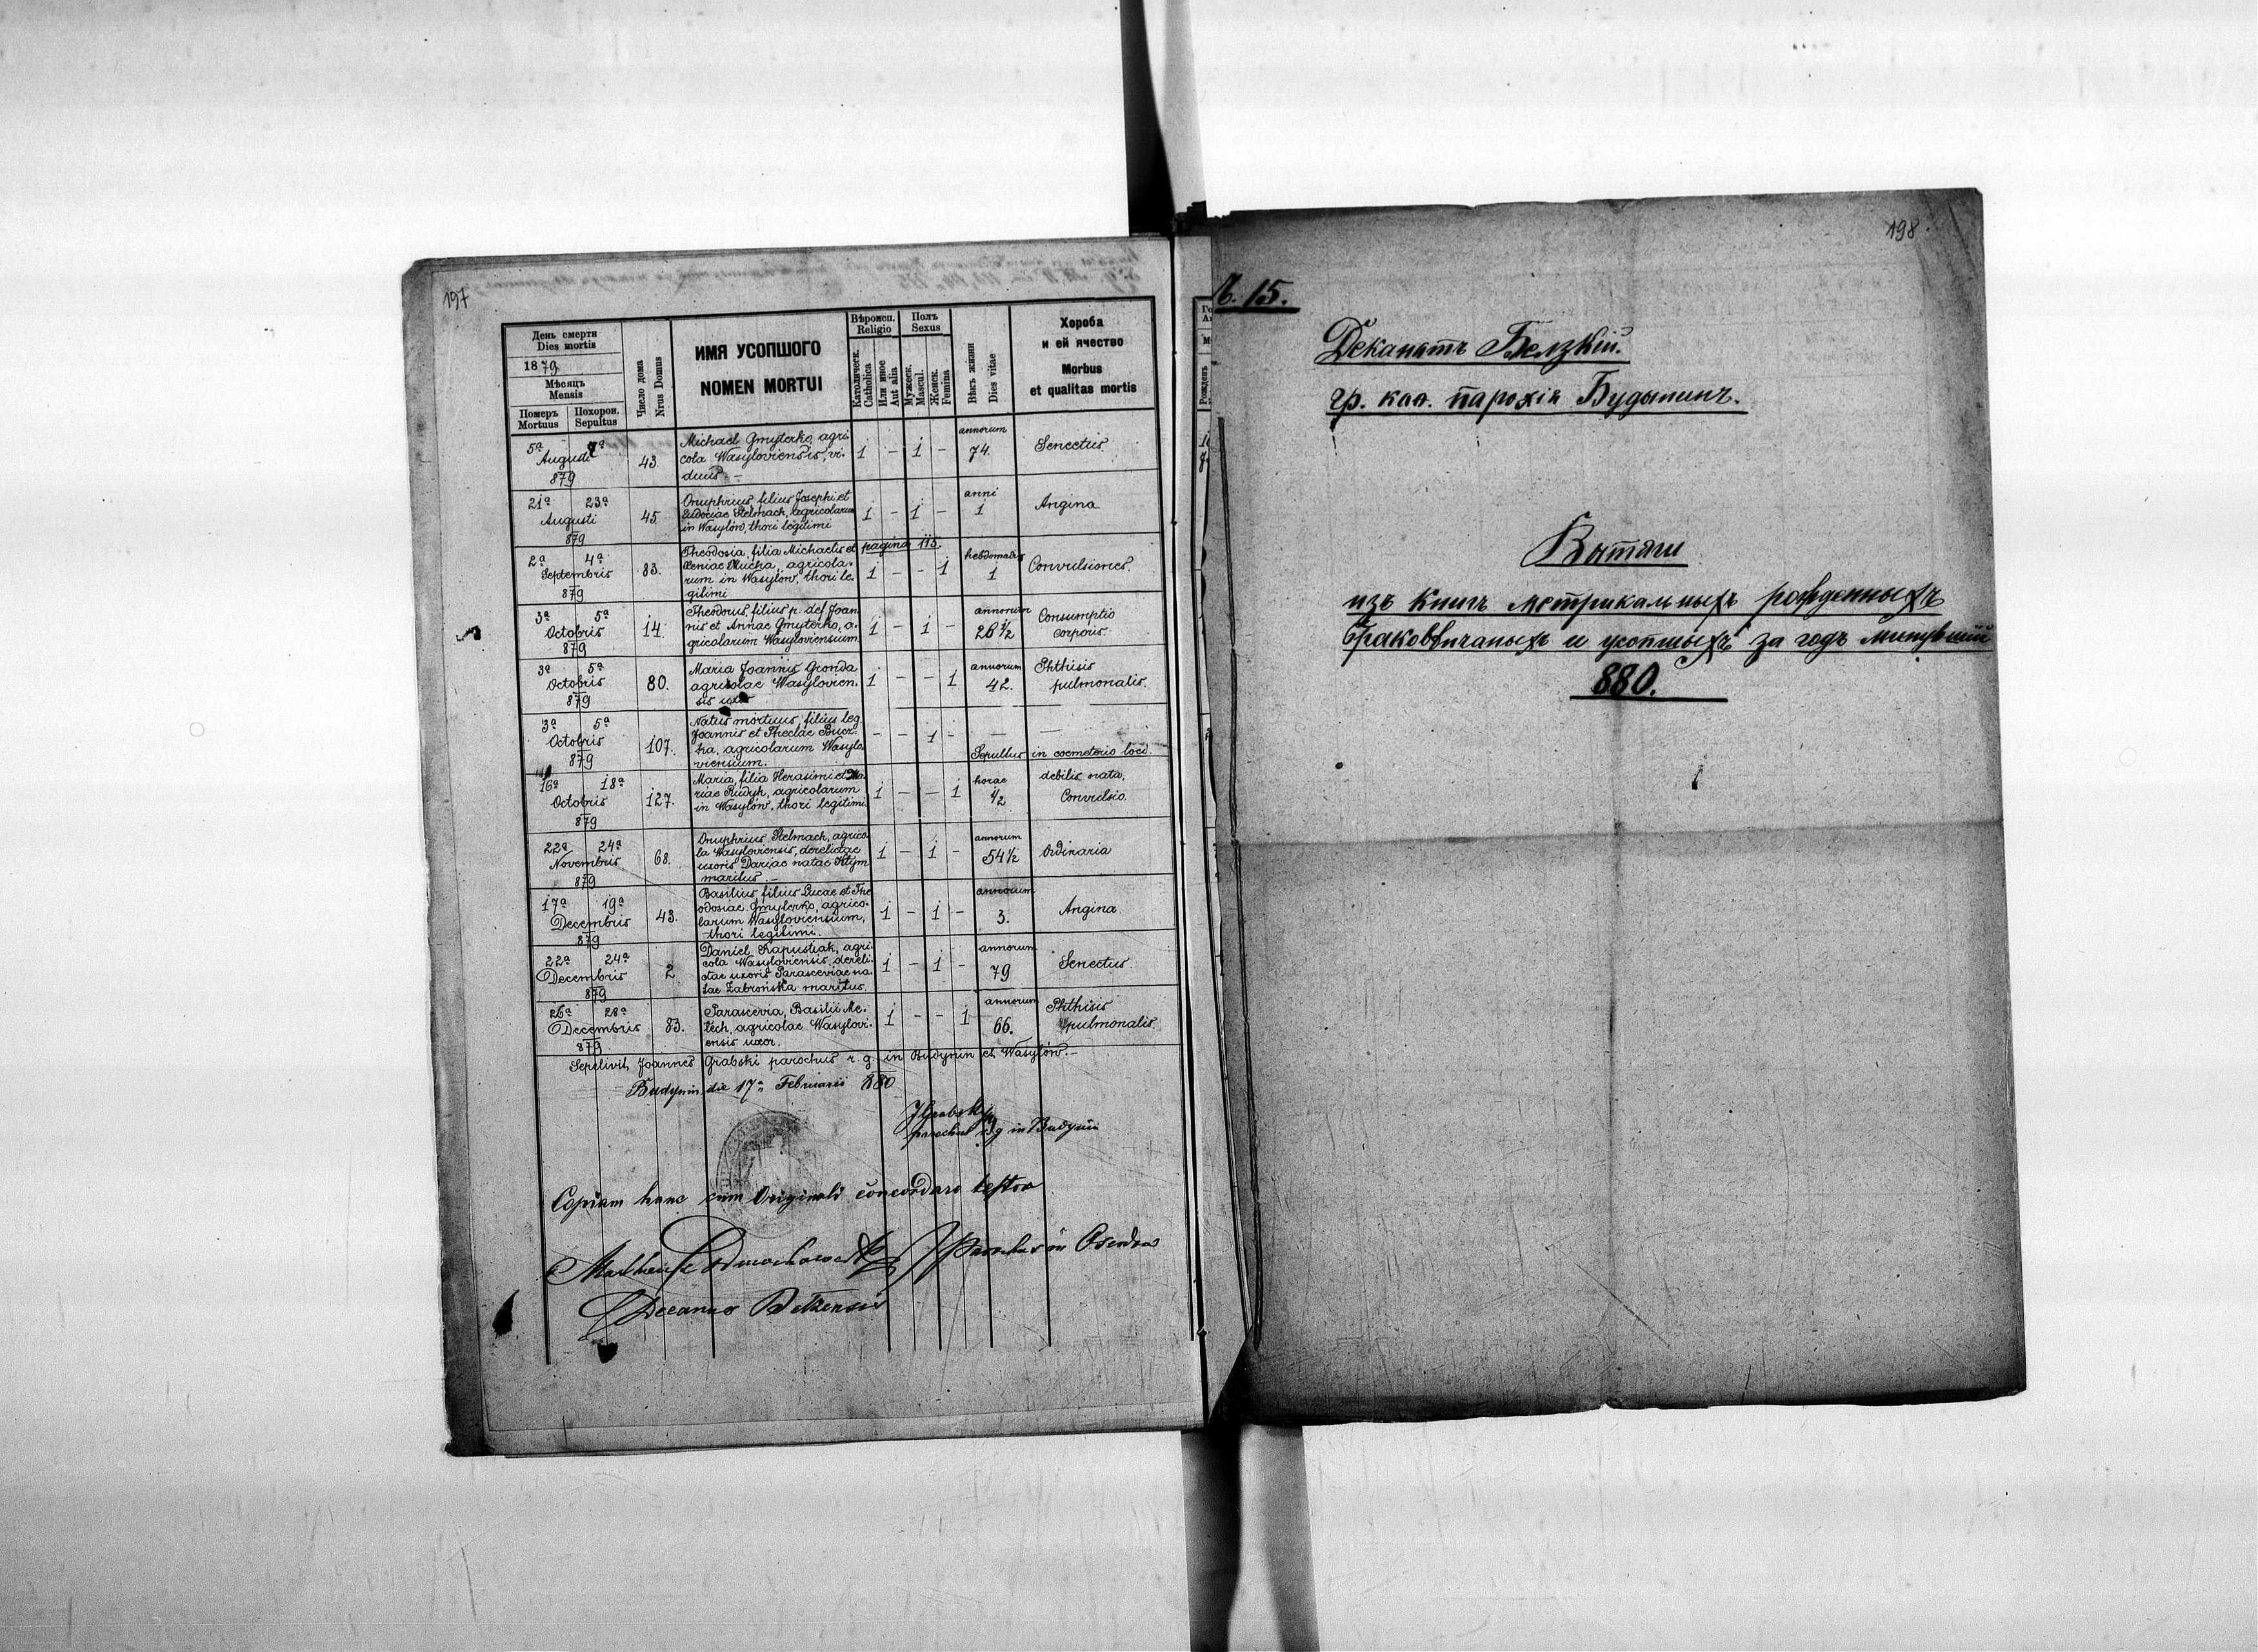 197
День смерти
Dies mortis
1879
Мѣсяцъ
Mensis
Померъ
Mortuus
Похорон.
Sepultus
Число дома
Nrus Domus
ИМЯ УСОПШОГО
NOMEN MORTUI
Вѣроисп.
Religio
Католическ.
Catholica
Или иное
Aut alia
Полъ
Sexus
Мужеск.
Mascul.
Женск.
Femina
Вѣкъ жизни
Dies vitae
Хороба
и ей ячество
Morbus
et qualitas mortis
5ª 7ª
Augusti
879
43.
Michael Gmyterko, agri-
cola Wasyloviensis, vi-
duus. -
1 - 1 -
annorum
74.
Senectus
21ª 23ª
Augusti
879
45.
Onuphrius, filius Josephi et
Eudociae Stelmach, agricolarum
in Wasylów, thori legitimi
1 - 1 -
anni
1
Angina
pagina 115.
2ª 4ª
Septembris
879
83.
Theodosia, filia Michaelis et
Xeniae Mucha, agricola-
rum in Wasylów, thori le-
gitimi
1 - - 1
hebdomadis
1
Convulsiones
3ª 5ª
Octobris
879
14.
Theodorus, filius p. def. Joan-
nis et Annae Gmyterko, a-
gricolarum Wasyloviensium
1 - 1 -
annorum
26 ½
Consumptio
corporis.
3ª 5ª
Octobris
879
80.
Maria Joannis Gronda
agricolae Wasylovien-
sis uxor
1 - - 1
annorum
42.
Phthisis
pulmonalis.
3ª 5ª
Octobris
879
107.
Natus mortuus, filius leg.
Joannis et Theclae Bucz-
ha, agricolarum Wasylo-
viensium.
- - 1 - — —
Sepultus in coemeterio loci.
16ª 18ª
Octobris
879
127.
Maria, filia Herasimi et Ma-
riae Rudyk, agricolarum
in Wasylów, thori legitimi.
1 - - 1
horae
½
debilis nata,
Convulsio.
22ª 24ª
Novembris
879
68.
Onuphrius Stelmach, agrico-
la Wasyloviensis, derelictae
uxoris Dariae natae Klym
maritus. -
1 - 1 -
annorum
54 ½
Ordinaria
17ª 19ª
Decembris
879
43.
Basilius, filius Lucae et The-
odosiae Gmyterko, agrico-
larum Wasyloviensium,
thori legitimi.
1 - 1 -
annorum
3.
Angina
22ª 24ª
Decembris
879
2
Daniel Kapustiak, agri-
cola Wasyloviensis, dereli-
ctae uxoris Parasceviae na-
tae Zabrońska maritus.
1 - 1 -
annorum
79
Senectus.
26ª 28ª
Decembris
879
83.
Parascevia, Basilii Me-
lech, agricolae Wasylovi-
ensis uxor.
1 - - 1
annorum
66.
Phthisis
pulmonalis.
Sepelivit Joannes Grabski parochus r. g. in Budynin et Wasylów. -
Budynin die 17ª Februarii 880
JGrabski
parochus r g in Budynin
Copiam hanc cum Originali concordare testor
Parochus in
Decanus Belzensis
198.
Ч. 15.
Деканатъ Белзкій.
гр. кат. парохія Будынинъ.
Вытяги
изъ книгъ метрикальныхъ рожденныхъ
браковѣнчаныхъ и усопшыхъ за годъ минувшій
880.